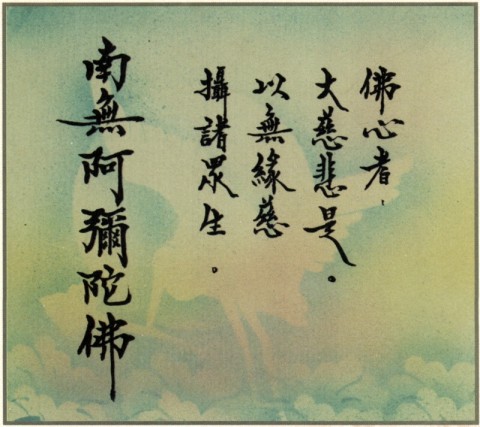 佛心者，
大慈悲是。
以無緣慈
攝諸眾生。
南無阿彌陀佛